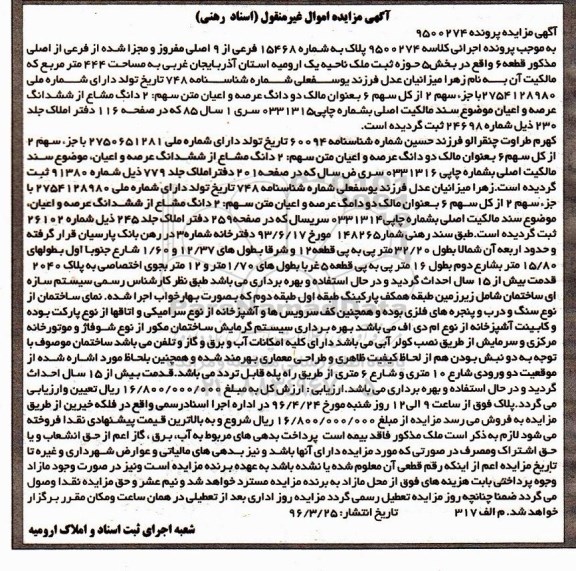 آگهی مزایده اموال غیرمنقول (اسناد رهنی)
آگهی مزایده پرونده ۹۵۰۰۲۷۴
به موجب پرونده اجرائی کلاسه ۹۵۰۰۲۷۴ پلاک به شماره ۱۵۴۶۸ فرعی از ۹ اصلی مفروز و مجزا شده از فرعی از اصلی
مذکور قطعه ۶ واقع در بخش ۵ حوزه ثبت ملک ناحیه یک ارومیه استان آذربایجان غربی به مساحت ۴۴۴ متر مربع که
مالکیت آن به نام زهرا میزانیان عدل فرزند یوسفعلی شماره شناسنامه ۷۴۸ تاریخ تولد دارای شماره ملی
۲۷۵۴۱۲۸۹۸۰ با جز، سهم ۲ از کل سهم ۶ بعنوان مالک دو دانگ عرصه و اعیان متن سهم: ۲ دانگ مشاع از ششدانگ
عرصه و اعیان موضوع سند مالکیت اصلی بشماره چاپی ۰۳۳۱۳۱۵ سری ۱ سال ۸۵ که در صفحه ۱۱۶ دفتر املاک جلد
۲۳۰ ذیل شماره ۲۴۶۹۸ ثبت گردیده است.
کهرم طراوت چنقرالو فرزند حسین شماره شناسنامه ۶۰۰۹۴ تاریخ تولد دارای شماره ملی ۲۷۵۰۶۵۱۲۸۱ با جز، سهم ۲
از کل سهم ۶ بعنوان مالک دو دانگ عرصه و اعیان متن سهم: ۲ دانگ مشاع از ششدانگ عرصه و اعیان، موضوع سند
مالکیت اصلی بشماره چاپی ۰۳۳۱۳۱۶ سری فر سال که در صفحه ۲۰۱ دفتر املاک جلد ۷۷۹ ذیل شماره ۹۱۳۸۰ ثبت
گردیده است. زهرا میزانیان عدل فرزند یوسفعلی شماره شناسنامه ۷۴۸ تاریخ تولد دارای شماره ملی ۲۷۵۴۱۲۸۹۸۰ با
جز، سهم ۲ از کل سهم ۶ بعنوان مالک دو دانگ عرصه و اعیان متن سهم: ۲ دانگ مشاع از ششدانگ عرصه و اعیان،
موضوع سند مالکیت اصلی بشماره چاپی ۰۳۳۱۳۱۴ سریسال که در صفحه ۲۵۹ دفتر املاک جلد ۲۴۵ ذیل شماره ۲۶۱۰۲
ثبت گردیده است. طبق سند رهنی شمار ۱۴۸۲۶۵ مورخ ۹۳/۶/۱۷ دفترخانه شماره ۳ در رهن بانک پارسیان قرار گرفته
و حدود اربعه آن شمالا بطول ۳۲/۲۰ متر پی به پی قطعه ۱۲ و شرقا بطول های ۱۲/۳۷ و ۱/۶۰ شارع جنوبا اول بطولهای
۱۵/۸۰ متر بشارع دوم بطول ۱۶ متر پی به پی قطعه ۵ غربا بطول های ۱/۷۰ متر و ۱۲ متر بجوی اختصاصی به پلاک ۲۰۴۰
قدمت بیش از ۱۵ سال احداث گردید و در حال استفاده و بهره برداری می باشد طبق نظر کارشناس رسمی سیستم سازه
ای ساختمان شامل زیرزمین طبقه همکف پارکینگ طبقه اول طبقه دوم که بصورت بهارخواب اجرا شده. نمای ساختمان از
نوع سنگ و درب و پنجره های فلزی بوده و همچنین کف سرویس ها و آشپزخانه از نوع سرامیکی و اتاقها از نوع پارکت بوده
و کابینت آشپزخانه از نوع ام دی اف می باشد بهره برداری سیستم گرمایش ساختمان مکور از نوع شوفاژ و موتورخانه
مرکزی و سرمایش از طریق نصب کولر آبی می باشد دارای کلیه امکانات آب و برق و گاز و تلفن می باشد ساختمان موصوف با
توجه به دو نبش بودن هم از لحاظ کیفیت ظاهری و طراحی معماری بهرمند شده و همچنین بلحاظ مورد اشاره شده از
موقعیت دو ورودی شارع ۱۰ متری و شارع ۶ متری از طریق راه پله قابل تردد می باشد. قدمت بیش از ۱۵ سال احداث
گردید و در حال استفاده و بهره برداری می باشد. ارزیابی: ارزش کل به مبلغ ۱۶/۸۰۰/۰۰۰/۰۰۰ ریال تعیین و ارزیابی
می گردد. پلاک فوق از ساعت ۹ الی ۱۲ روز شنبه مورخ ۹۶/۴/۲۴ در اداره اجرا اسناد رسمی واقع در فلکه خیرین از طریق
مزایده به فروش می رسد مزایده از مبلغ ۱۶/۸۰۰/۰۰۰/۰۰۰ ریال شروع و به بالاترین قیمت پیشنهادی نقدا فروخته
می شود لازم به ذکر است ملک مذکور فاقد بیمه است پرداخت بدهی های مربوط به آب، برق، گاز اعم از حق انشعاب و یا
حق اشتراک و مصرف در صورتی که مورد مزایده دارای آنها باشد و نیز بدهی های مالیاتی و عوارض شهرداری و غیره تا
تاریخ مزایده اعم از اینکه رقم قطعی آن معلوم شده یا نشده باشد به عهده برنده مزایده است و نیز در صورت وجود مازاد
وجوه پرداختی بابت هزینه های فوق از محل مازاد به برنده مزایده مسترد خواهد شد و نیم عشر و حق مزایده نقدا وصول
می گردد ضمنا چنانچه روز مزایده تعطیل رسمی گردد مزایده روز اداری بعد از تعطیلی در همان ساعت و مکان مقرر برگزار
خواهد شد. م الف ۳۱۷ تاریخ انتشار: ۹۶/۳/۲۵
شعبه اجرای ثبت اسناد و املاک ارومیه